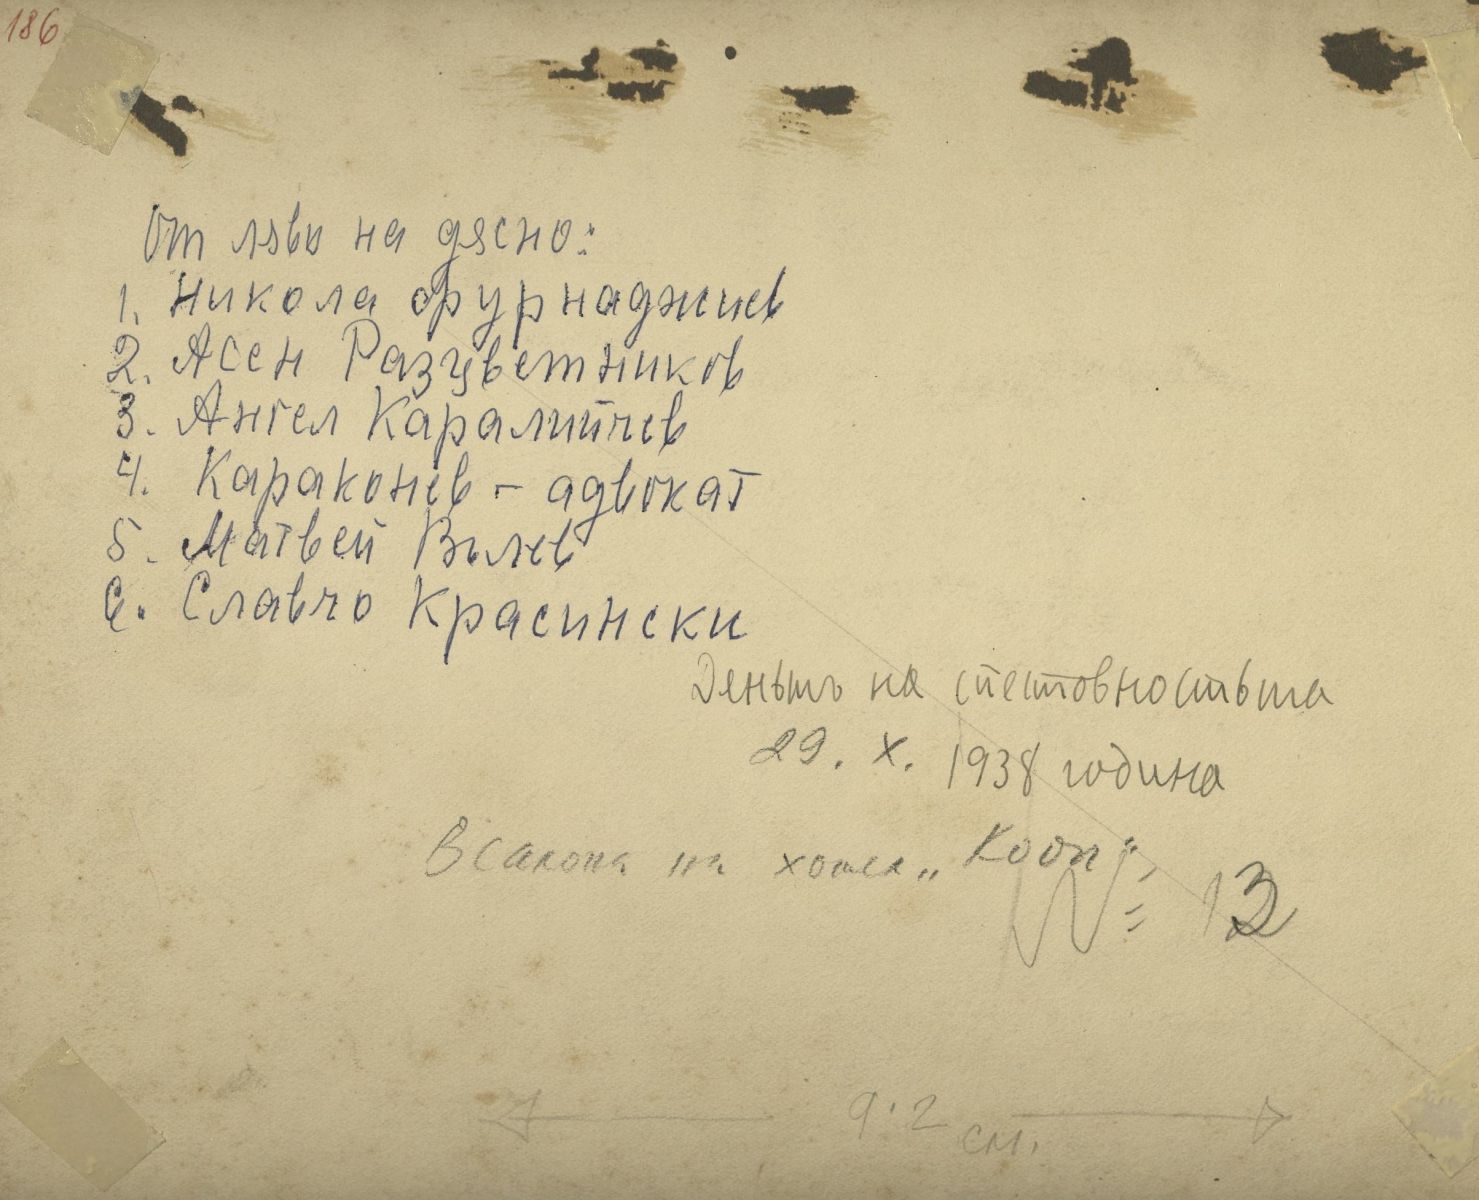 186
От ляво на дясно:
1. Никола Фурнаджиев
2. Асен Разцветников
3. Ангел Каралийчев
4. Караконев - адвокат
5. Матвей Вълев
6. Славчо Красински
Деньтъ на спестовностьта
29. X. 1938 година
В салона на хотел „Кооп“
N = 13
9.2
см.